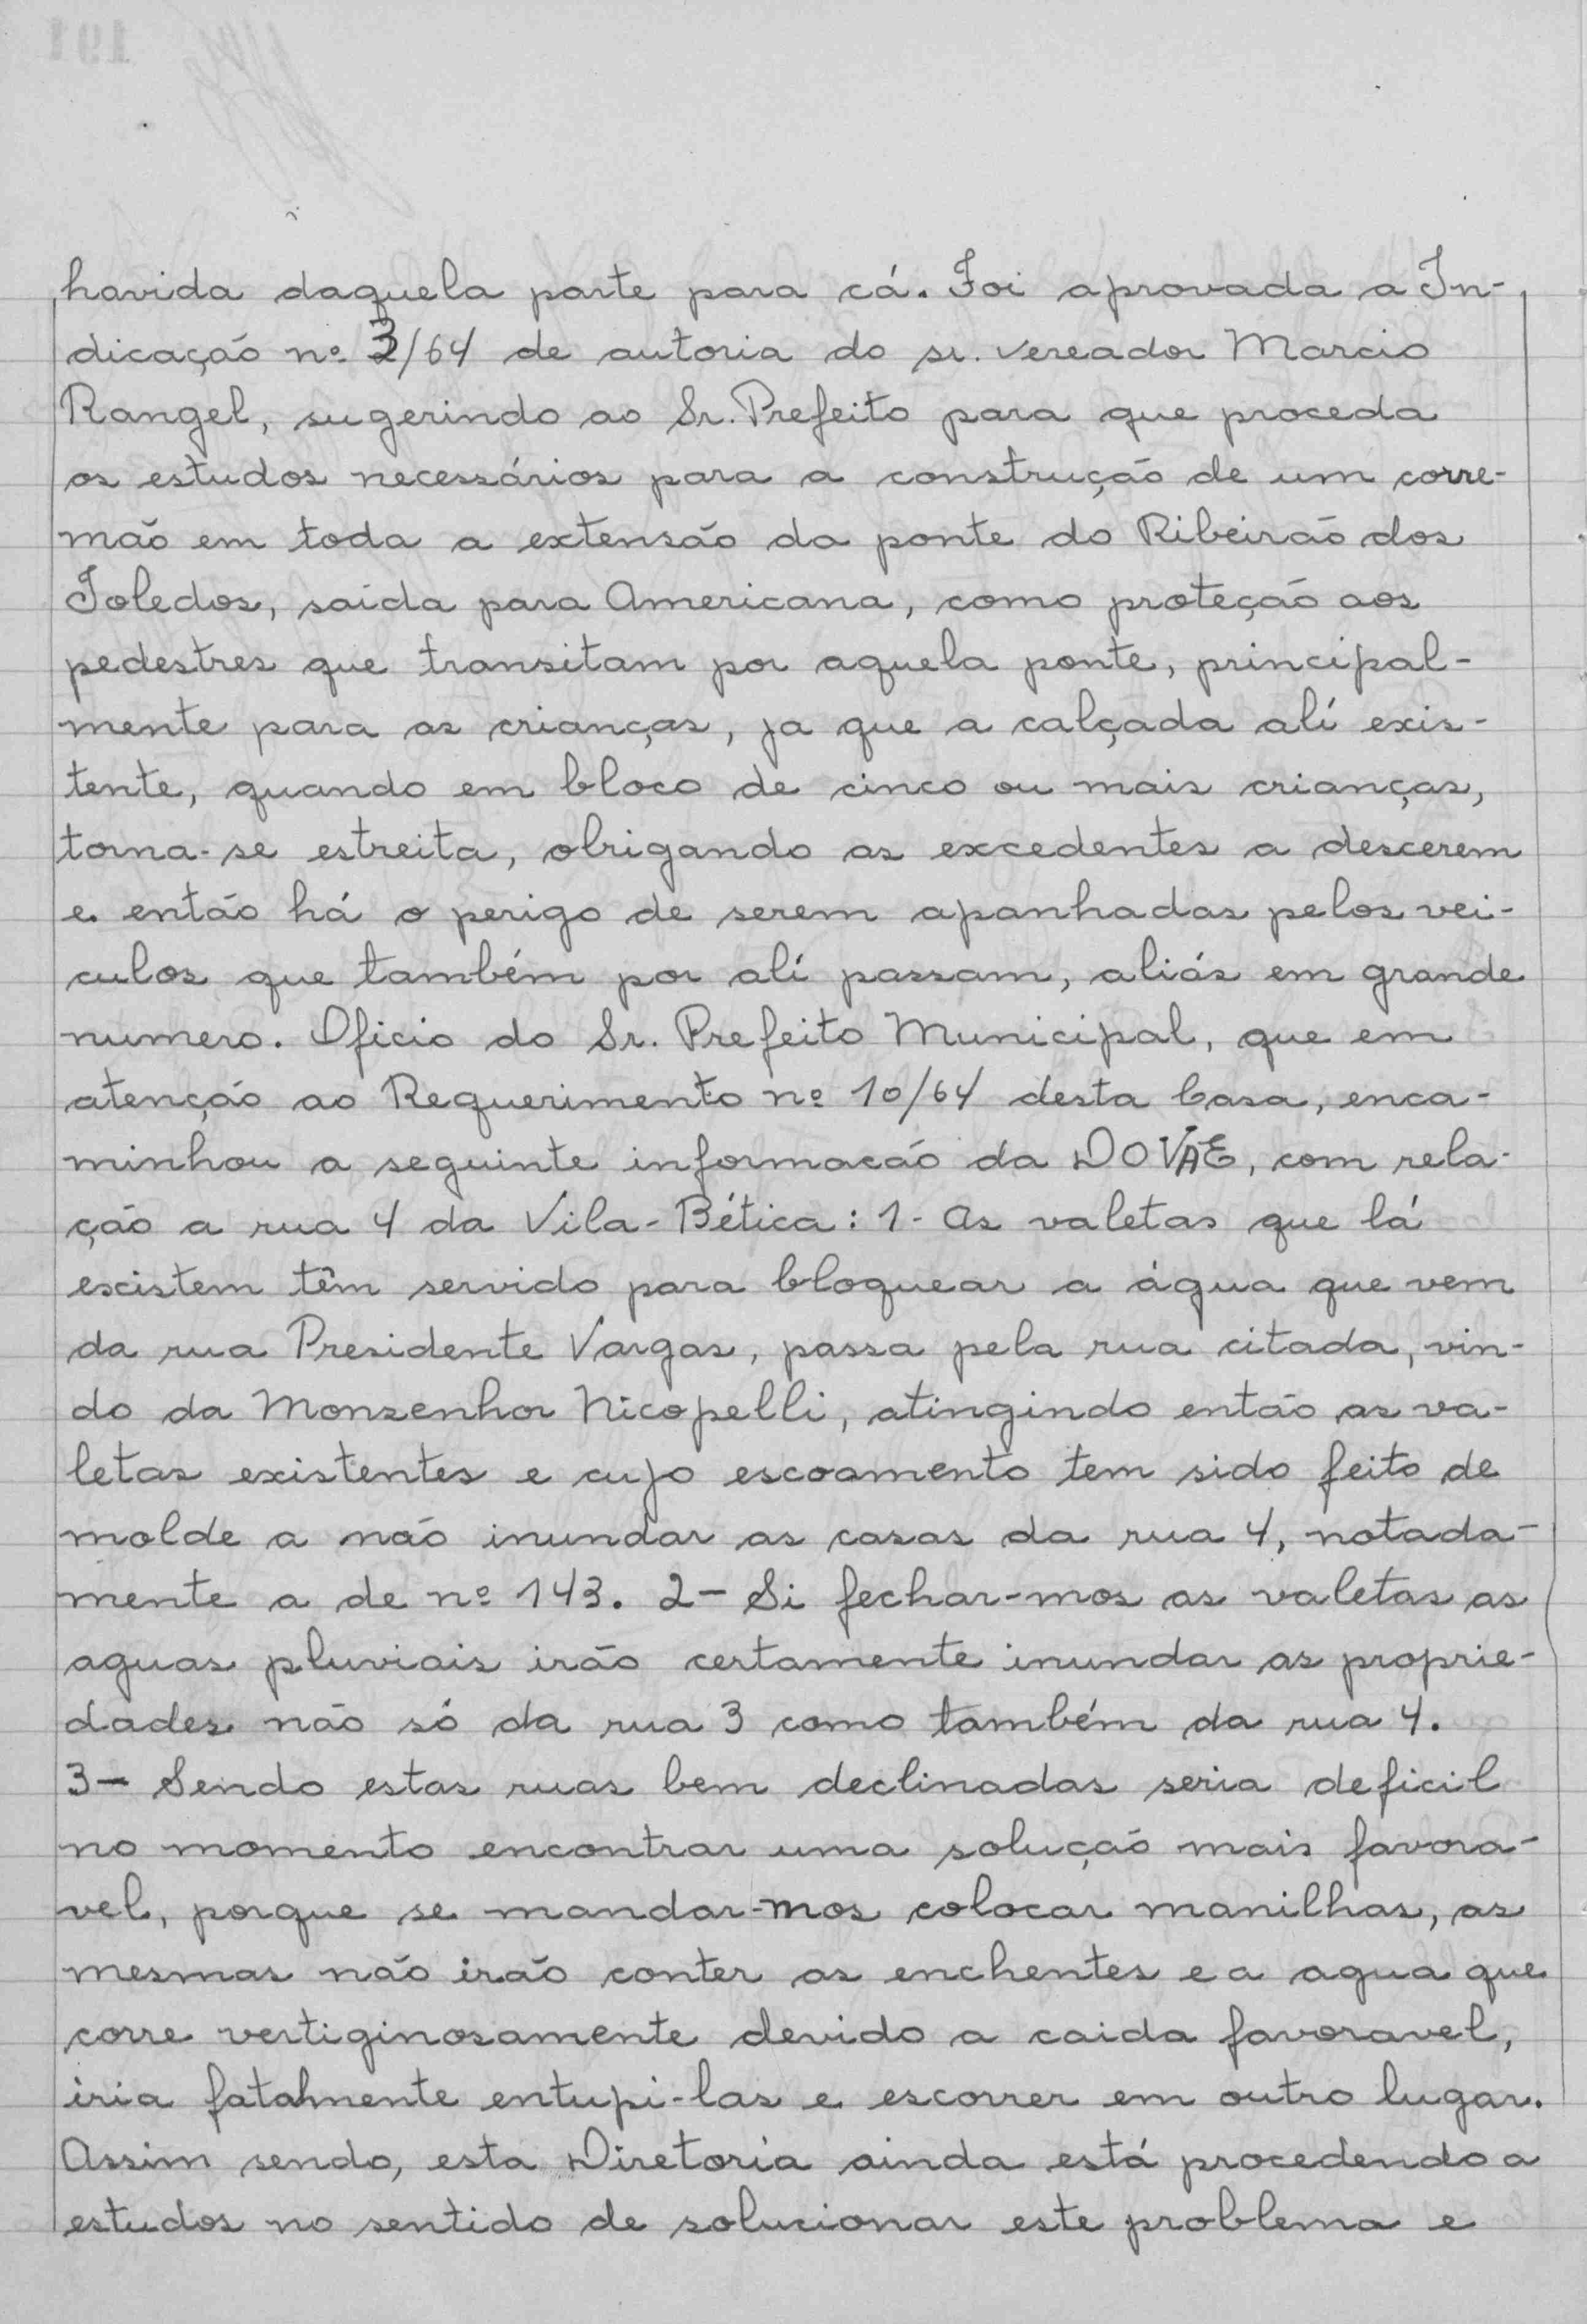 havida daquela parte para cá. Foi aprovada a In-
dicação nº 3/64 de autoria do sr. vereador Marcio
Rangel, sugerindo ao Sr. Prefeito para que proceda
os estudos necessários para a construção de um corre-
mão em toda a extensão da ponte do Ribeirão dos
Toledos, saída para Americana, como proteção aos
pedestres que transitam por aquela ponte, principal-
mente para as crianças, ja que a calçada alí exis-
tente, quando em bloco de cinco ou mais crianças,
torna-se estreita, obrigando as excedentes a descerem
e então há o perigo de serem apanhadas pelos vei-
culos que também por alí passam, aliás em grande
numero. Oficio do Sr. Prefeito Municipal, que em
atenção ao Requerimento nº 10/64 desta Casa, enca-
minhou a seguinte informacão da DOVAE, com rela-
ção a rua 4 da Vila-Bética: 1- As valetas que lá
existem têm servido para bloquear a água que vem
da rua Presidente Vargas, passa pela rua citada, vin-
do da Monsenhor Nicopelli, atingindo então as va-
letas existentes e cujo escoamento tem sido feito de
molde a não inundar as casas da rua 4, notada-
mente a de nº 143. 2- Si fechar-mos as valetas as
aguas pluviais irão certamente inundar as proprie-
dades não só da rua 3 como também da rua 4.
3- Sendo estas ruas bem declinadas seria deficil
no momento encontrar uma solução mais favora-
vel, porque se mandar-mos colocar manilhas, as
mesmas não irão conter as enchentes e a agua que
corre vertiginosamente devido a caida favoravel,
iria fatalmente entupi-las e escorrer em outro lugar.
Assim sendo, esta Diretoria ainda está procedendo a
estudos no sentido de solucionar este problema e